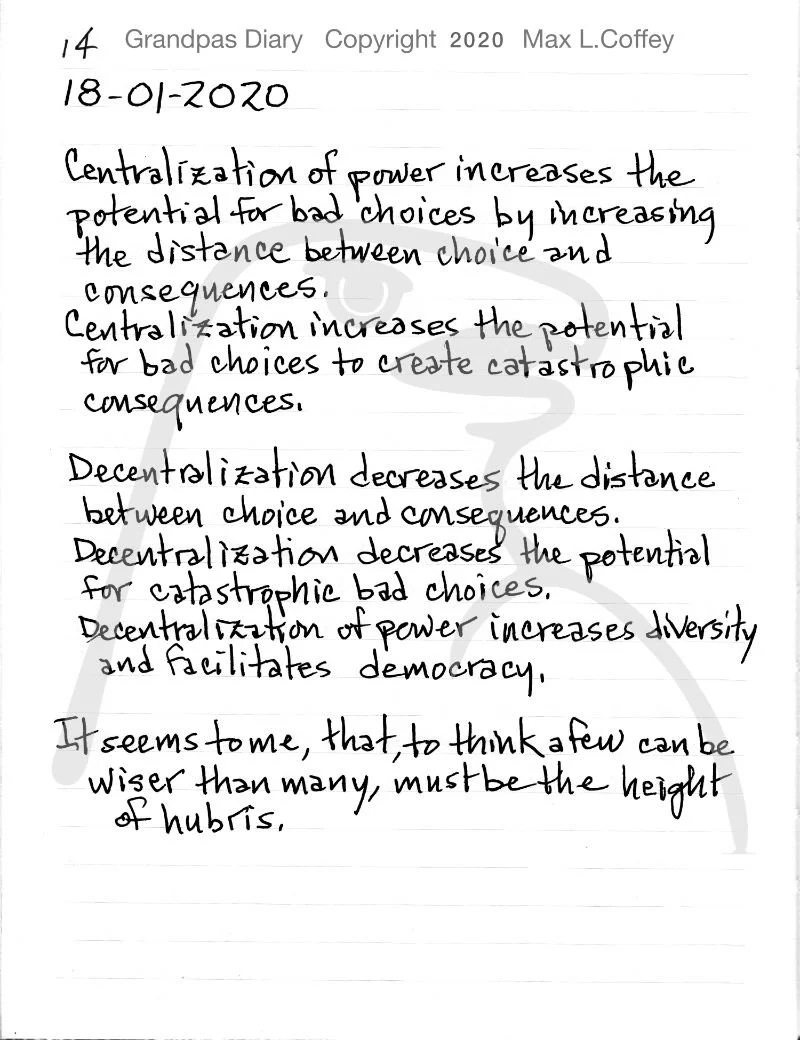 14 Grandpas Diary Copyright 2020 Max L.Coffey
18-01-2020
Centralization of power increases the
potential for bad choices by increasing
the distance between choice and
consequences.
Centralization increases the potential
for bad choices to create catastrophic
consequences.
Decentralization decreases the distance
between choice and consequences.
Decentralization decreases the potential
for catastrophic bad choices.
Decentralization of power increases diversity
and facilitates democracy.
It seems to me, that, to think a few can be
wiser than many, must be the height
of hubris.